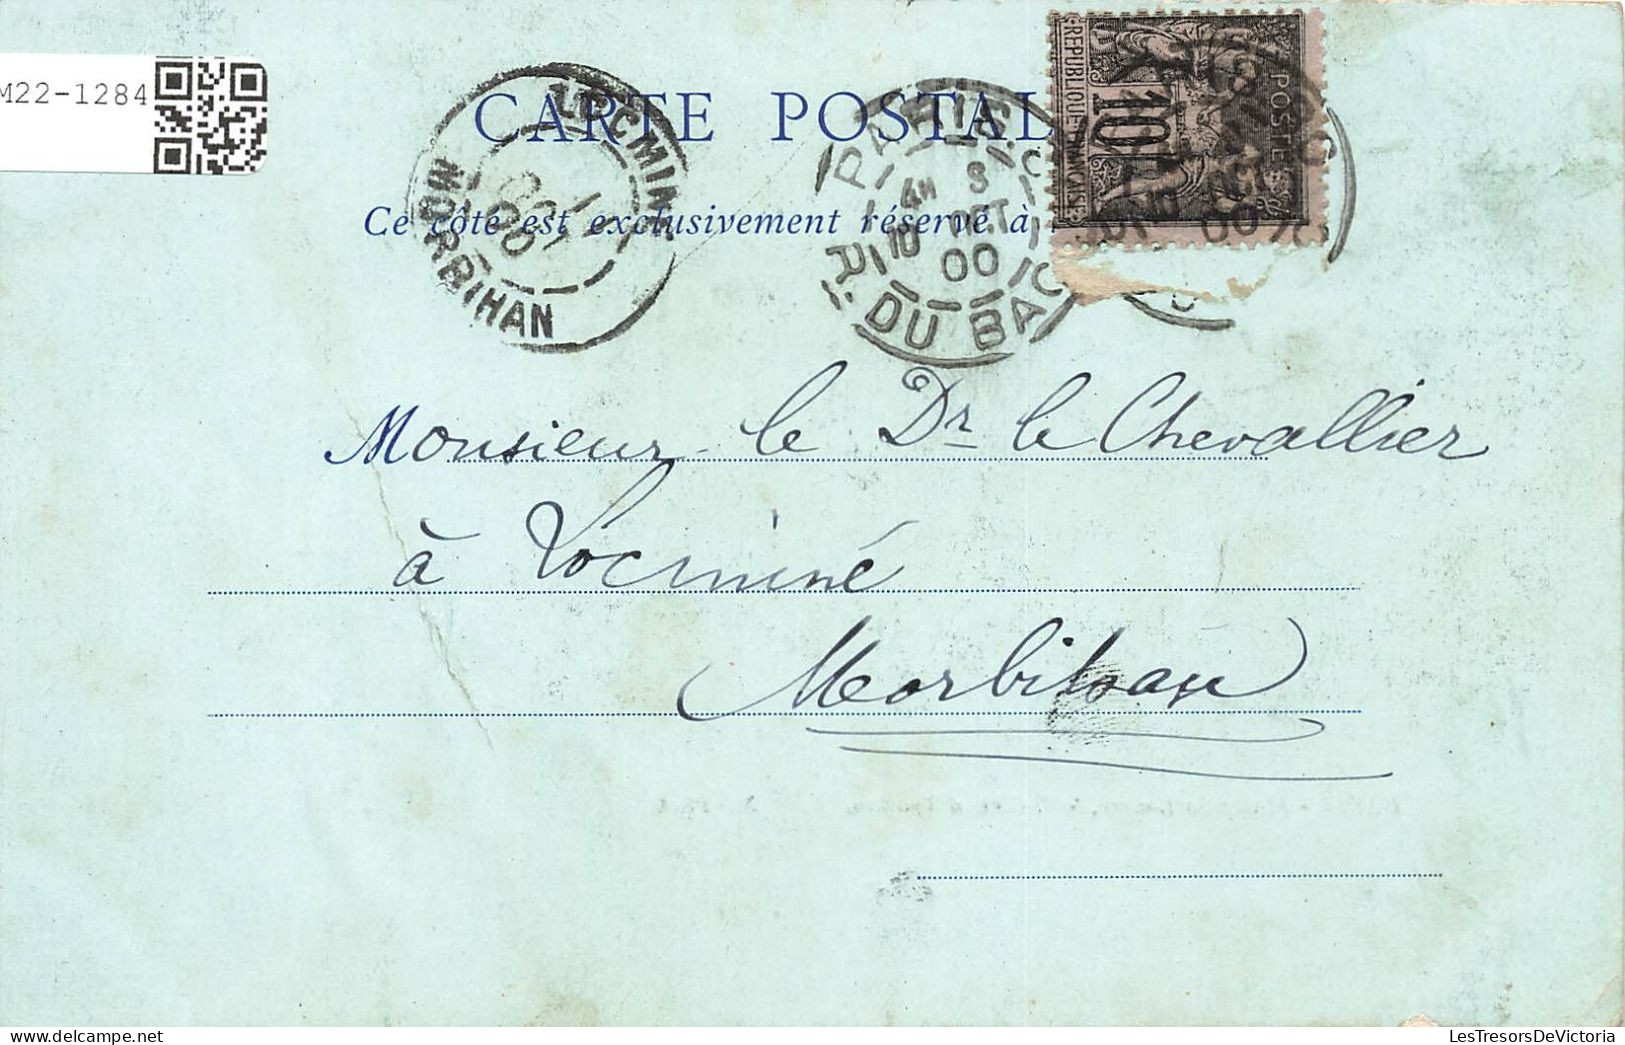 M22-1284
CARTE POSTAL
Ce côté est exclusivement réservé à
LOCMINÉ
MORBIHAN
11
OCT
00
PARIS
4H S
10 OCT
00
R. DU BAC
REPUBLIQUE FRANÇAISE
10
POSTES
Monsieur le Dr le Chevallier
à Locminé
Morbihan
LesTresorsDeVictoria